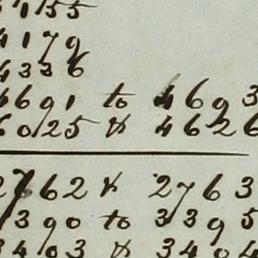 4155
4179
4336
4691 to 4693
6025 & 4626
2762 & 2763
3390 to 3395
3403 & 3404